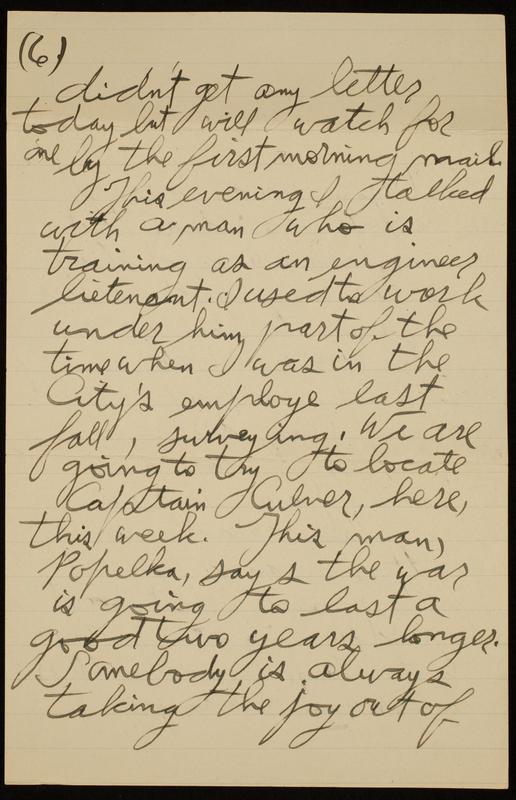 (6)
didn't get any letter
today but will watch for
one by the first morning mail.
This evening I talked
with a man who is
training as an engineer
lietenant. I used to work
under him part of the
time when I was in the
City's employe last
fall, surveying. We are
going to try to locate
Captain Culver, here,
this week. This man,
Popelka, says the war
is going to last a
good two years longer.
Somebody is always
taking the joy out of